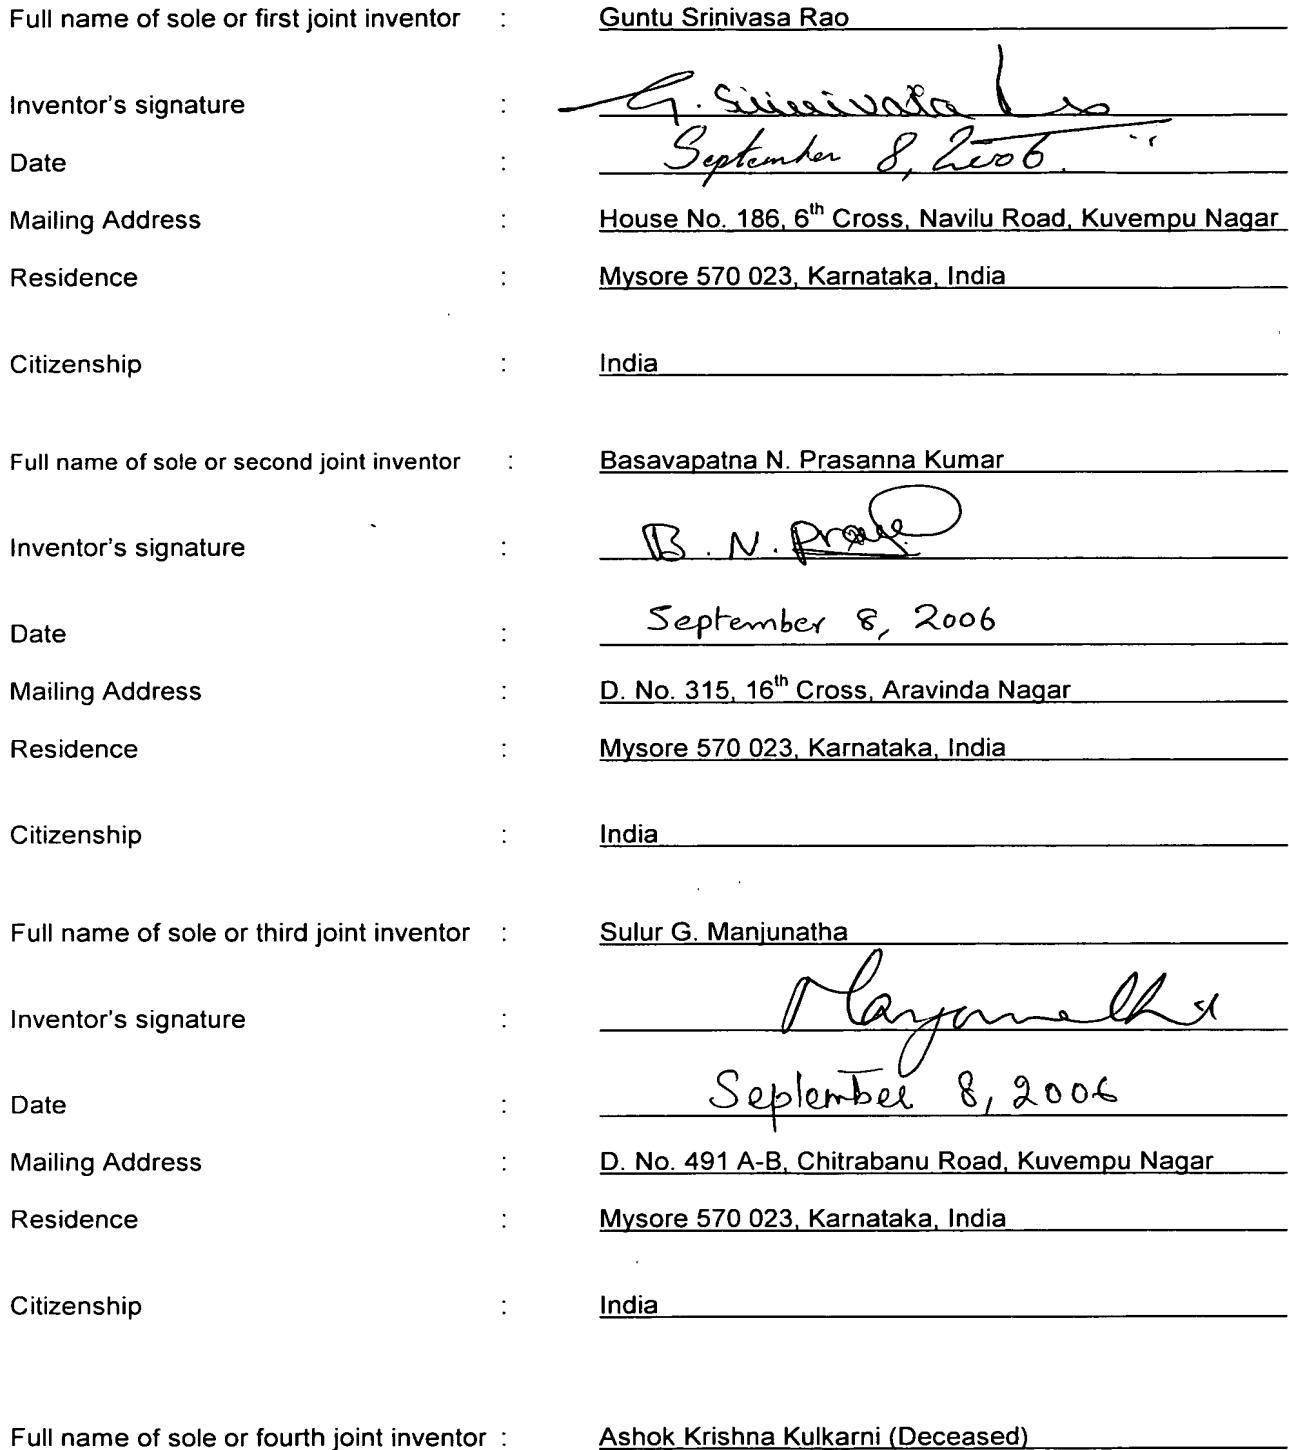 Full name of sole or first joint inventor : Guntu Srinivasa Rao
Inventor's signature : G. Srinivasa Rao
Date : September 8, 2006
Mailing Address : House No. 186, 6th Cross, Navilu Road, Kuvempu Nagar
Residence : Mysore 570 023, Karnataka, India
Citizenship : India
Full name of sole or second joint inventor : Basavapatna N. Prasanna Kumar
Inventor's signature : B. N.
Date : September 8, 2006
Mailing Address : D. No. 315, 16th Cross, Aravinda Nagar
Residence : Mysore 570 023, Karnataka, India
Citizenship : India
Full name of sole or third joint inventor : Sulur G. Manjunatha
Inventor's signature : Manjunatha
Date : September 8, 2006
Mailing Address : D. No. 491 A-B, Chitrabanu Road, Kuvempu Nagar
Residence : Mysore 570 023, Karnataka, India
Citizenship : India
Full name of sole or fourth joint inventor : Ashok Krishna Kulkarni (Deceased)